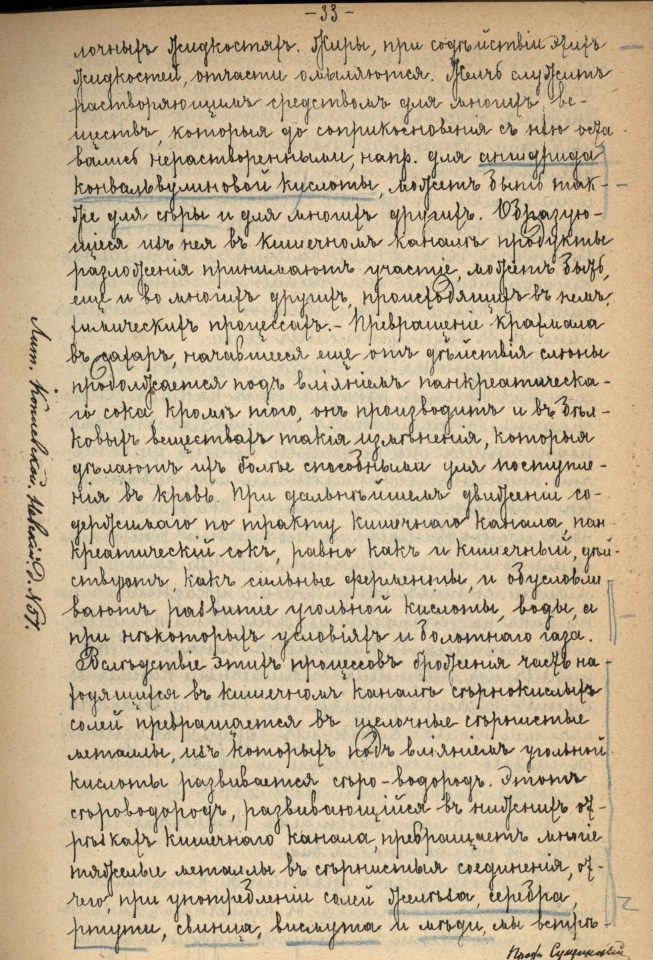 -33-
лочныхъ жидкостяхъ. Жиры, при содѣйствіи этихъ
жидкостей, отчасти омыляются. Желчь служитъ
растворяющимъ средствомъ для многихъ ве-
ществъ, которыя до соприкосновенія съ нею оста-
вались нерастворенными, напр. для ангидрида
конвальвулиновой кислоты, можетъ быть так-
же для сѣры и для многихъ другихъ. Образую-
щіеся изъ нея въ кишечномъ каналѣ продукты
разложенія принимаютъ участіе, можетъ быть,
еще и во многихъ другихъ, происходящихъ въ немъ,
химическихъ процессахъ.- Превращеніе крахмала
въ сахаръ, начавшееся еще отъ дѣйствія слюны
продолжается подъ вліяніемъ панкреатическа-
го сока. Кромѣ того, онъ производитъ и въ бѣл-
ковыхъ веществахъ такія измѣненія, которыя
дѣлаютъ ихъ болѣе способными для поступле-
нія въ кровь. При дальнѣйшемъ движеніи со-
держимаго по тракту кишечнаго канала, пан-
креатическій сокъ, равно какъ и кишечный, дѣй-
ствуютъ, какъ сильные ферменты, и обусловли-
ваютъ развитіе угольной кислоты, воды, а
при нѣкоторыхъ условіяхъ и болотнаго газа.
Вслѣдствіе этихъ процессовъ броженія часть на-
ходящихся въ кишечномъ каналѣ сѣрнокислыхъ
солей превращается въ щелочные сѣрнистые
металлы, изъ которыхъ подъ вліяніемъ угольной
кислоты развивается сѣро-водородъ. Этотъ
сѣроводородъ, развивающійся въ нижнихъ от-
рѣзкахъ кишечнаго канала, превращаетъ многіе
тяжелые металлы въ сѣрнистыя соединенія, от-
чего, при употребленіи солей желѣза, серебра,
ртути, свинца, висмута и мѣди, мы встрѣ-
Лит. Невскій. Д. №57.
Проф.